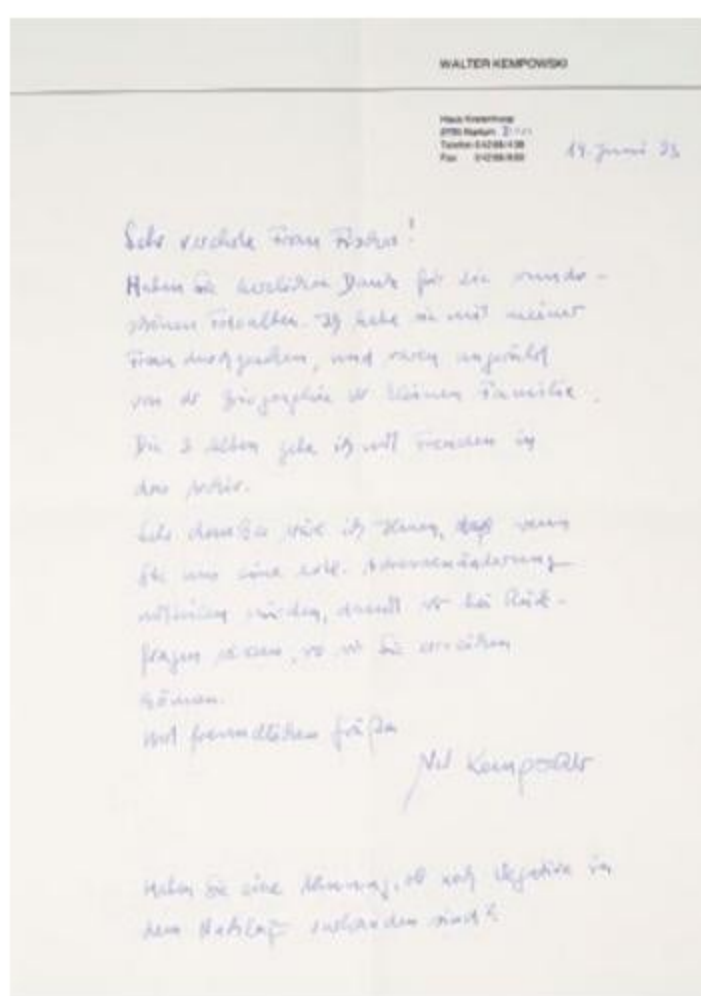 WALTER KEMPOWSKI
Haus Kreienhoop
Telefon
Fax
14. Juni 93
Sehr verehrte Frau Fischer!
Haben Sie herzlichen Dank für die wunder-
schönen Fotoalben. Ich habe sie mit meiner
Frau durchgesehen, und waren angerührt
von der Biographie der kleinen Familie.
Die 3 Alben gebe ich mit Freuden in
das Archiv.
Sehr dankbar wäre ich Ihnen, daß wenn
Sie uns eine evtl. Adressenänderung
mitteilen würden, damit wir bei Rück-
fragen wissen, wo wir Sie erreichen
können.
Mit freundlichen Grüßen
Kempowski
Haben Sie eine Ahnung, ob noch Negative in
dem Nachlaß vorhanden sind?